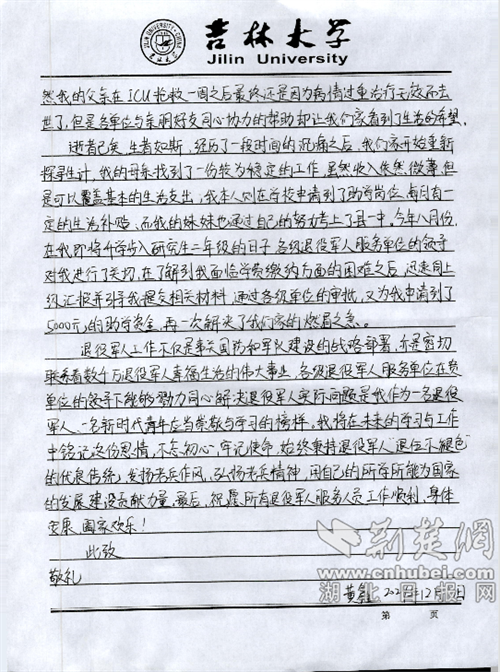 吉林大学
Jilin University
然我的父亲在ICU抢救一周之后最终还是因为病情过重治疗无效而去
世了,但是各单位与亲朋好友同心协力的帮助却让我们家看到了生活的希望。
逝者已矣,生者如斯,经历了一段时间的沉痛之后,我们家开始重新
探寻生计,我的母亲找到了一份较为稳定的工作,虽然收入依然微薄,但
是可以覆盖基本的生活支出,我本人则在学校申请到了助学岗位,每月有一
定的生活补贴,而我的妹妹也通过自己的努力考上了县一中。今年八月份,
在我即将升学步入研究生二年级的日子,各级退役军人服务单位的领导
对我进行了关切,在了解到我面临学费缴纳方面的困难之后,迅速向上
级汇报并引导我提交相关材料,通过各级单位的审批,又为我申请到了
5000元的助学资金,再一次解决了我们家的燃眉之急。
退役军人工作不仅是事关国防和军队建设的战略部署,亦是密切
联系着数千万退役军人幸福生活的伟大事业,各级退役军人服务单位在贵
单位的领导下能够勠力同心解决退役军人实际问题是我作为一名退役
军人、一名新时代青年应当崇敬与学习的榜样,我将在未来的学习与工作
中铭记这份恩情,不忘初心,牢记使命,始终秉持退役军人“退伍不褪色”
的优良传统,发扬老兵作风,弘扬老兵精神,用自己的所学所能为国家
的发展建设贡献力量。最后,祝愿所有退役军人服务人员工作顺利,身体
安康,阖家欢乐!
此致
敬礼
黄 202 年12月 日
第 页
荆楚网
www.cnhubei.com
湖北日报网